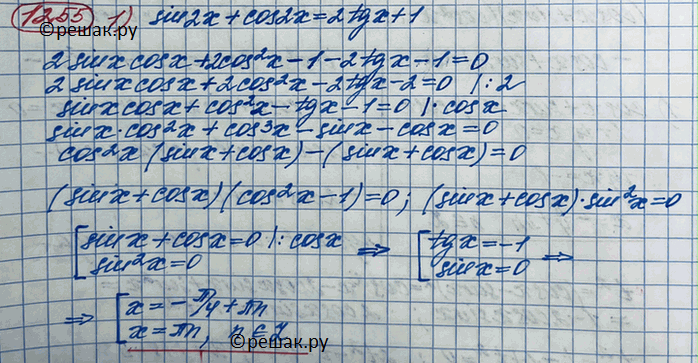 1255 1) sin2x + cos2x = 2tgx + 1
©решак.ру
2 sinx cosx + 2cos²x - 1 - 2tgx - 1 = 0
2 sinx cosx + 2cos²x - 2tgx - 2 = 0 | : 2
sinx cosx + cos²x - tgx - 1 = 0 | · cosx
sinx · cos²x + cos³x - sinx - cosx = 0
cos²x (sinx + cosx) - (sinx + cosx) = 0
(sinx + cosx)(cos²x - 1) = 0; (sinx + cosx) · sin²x = 0
[ sinx + cosx = 0 | : cosx ⇒ [ tgx = -1 ⇒
sin²x = 0 sinx = 0
⇒ [ x = -π/4 + πn
x = πn, n ∈ Z
©решак.ру